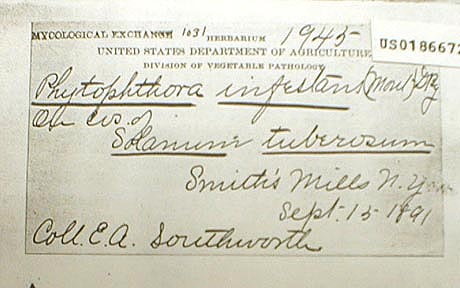 MYCOLOGICAL EXCHANGE 1031 HERBARIUM 1945
US0186672
UNITED STATES DEPARTMENT OF AGRICULTURE
DIVISION OF VEGETABLE PATHOLOGY
Phytophthora infestans (Mont.) DBy
On lvs. of
Solanum tuberosum
Smith's Mills N.Y.
Sept. 15 1891
Coll. E.A. Southworth